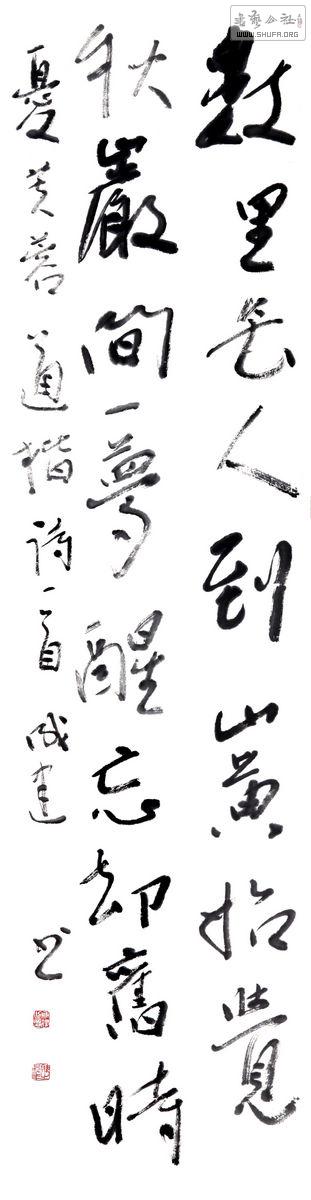 書藝公社
WWW.SHUFA.ORG
數里無人到山黃始覺
秋巖間一夢醒忘却舊時
憂芙蓉道楷詩一首成建書